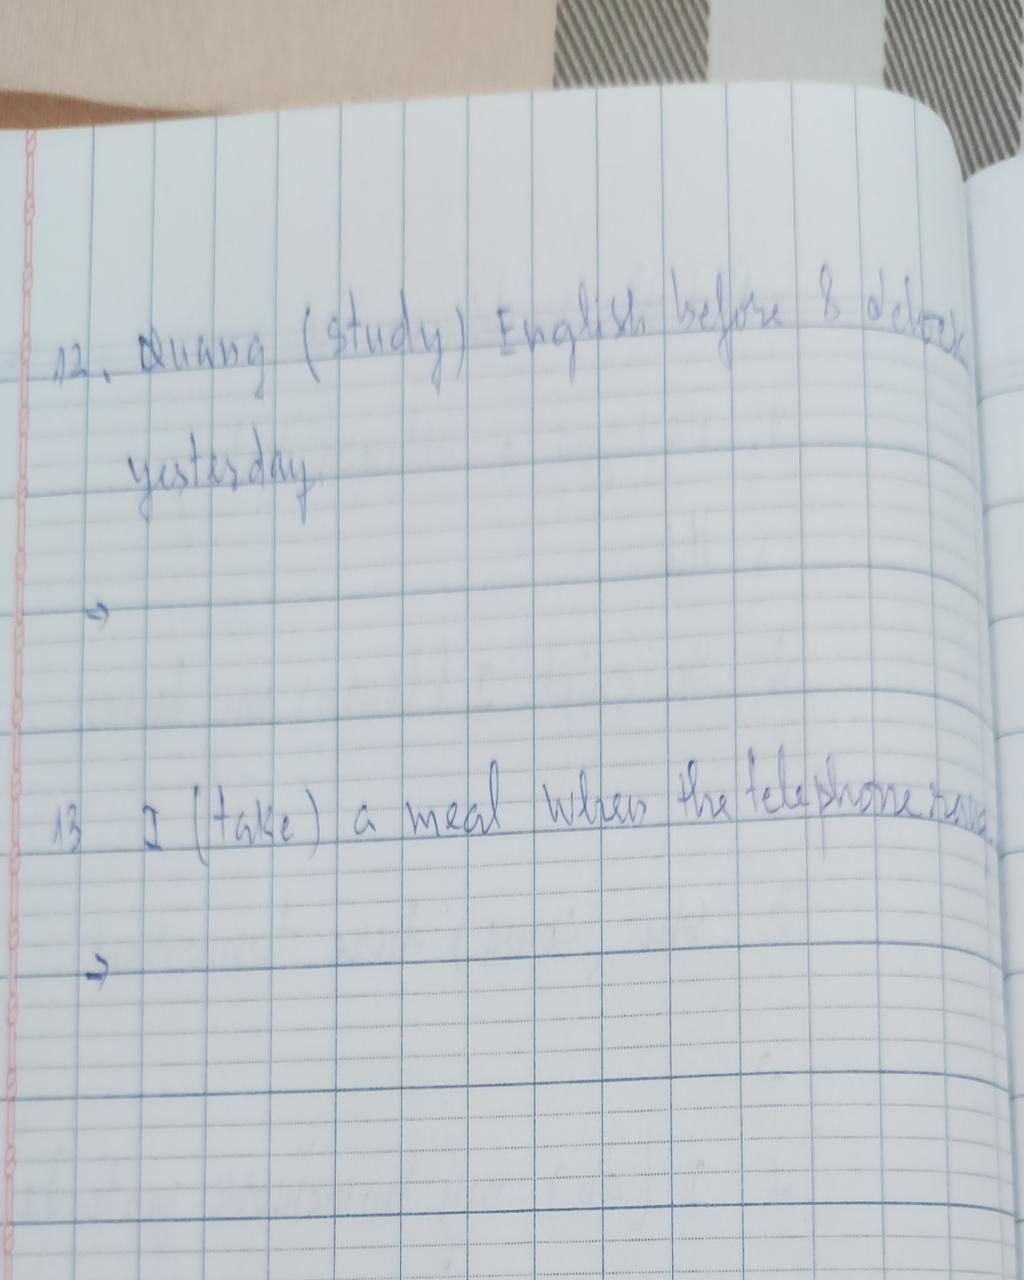 12. Quang (study) English before 8 o'clock
yesterday
→
13 I (take) a meal when the telephone rang
→